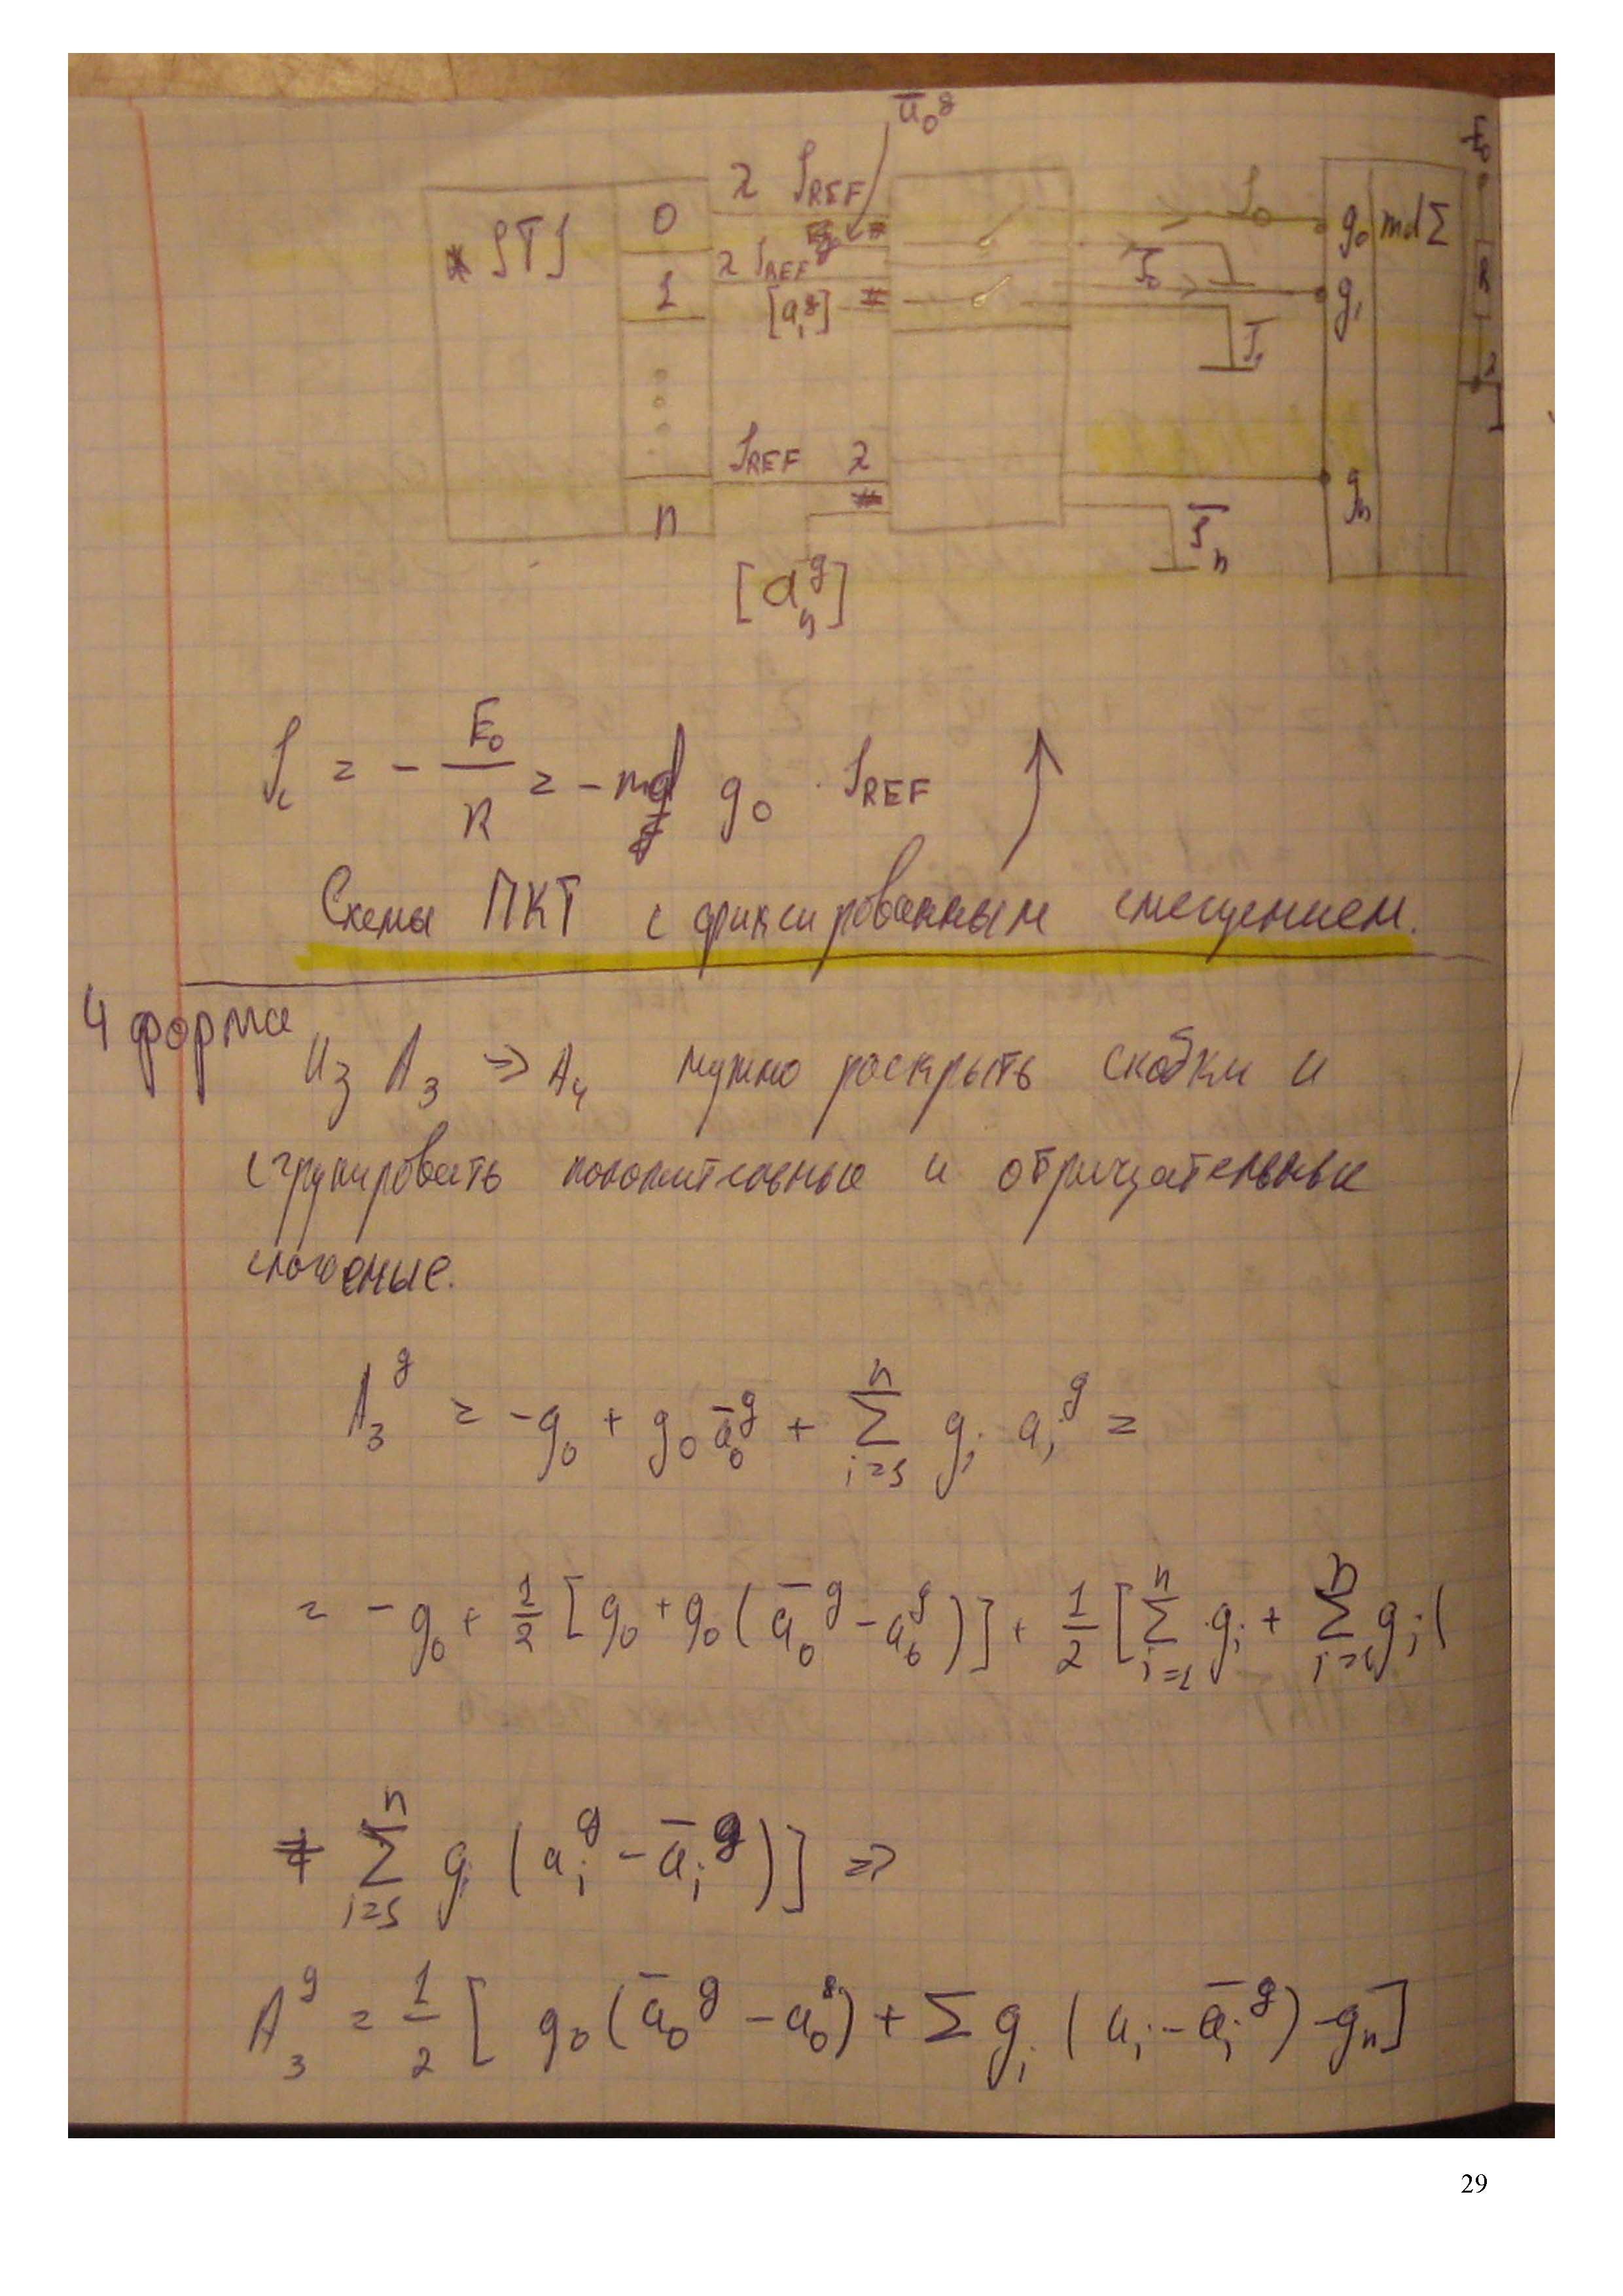 ā₀ᵍ
E₀
λ I_REF
I₀
* ITI
0
g₀ mdΣ
λ I_REF
Ī₀
R
1
[a₁ᵍ]
g₁
Ī₁
λ
I_REF λ
gₙ
n
Īₙ
[aₙᵍ]
I_c = - E₀/R = - md g₀ · I_REF
Схемы ПКТ с фиксированным смещением.
4 форма
Из A₃ ⇒ A₄ нужно раскрыть скобки и
сгрупировать положительные и отрицательные
слогаемые.
A₃ᵍ = -g₀ + g₀ ā₀ᵍ + Σ_{i=1}^{n} gᵢ aᵢᵍ =
= - g₀ + 1/2 [g₀ + g₀ (ā₀ᵍ - a₀ᵍ)] + 1/2 [Σ_{i=1}^{n} gᵢ + Σ_{i=1}^{n} gᵢ (
+ Σ_{i=1}^{n} gᵢ (aᵢᵍ - āᵢᵍ)] ⇒
A₃ᵍ = 1/2 [ g₀ (ā₀ᵍ - a₀ᵍ) + Σ gᵢ (aᵢ - āᵢᵍ) - gₙ]
29